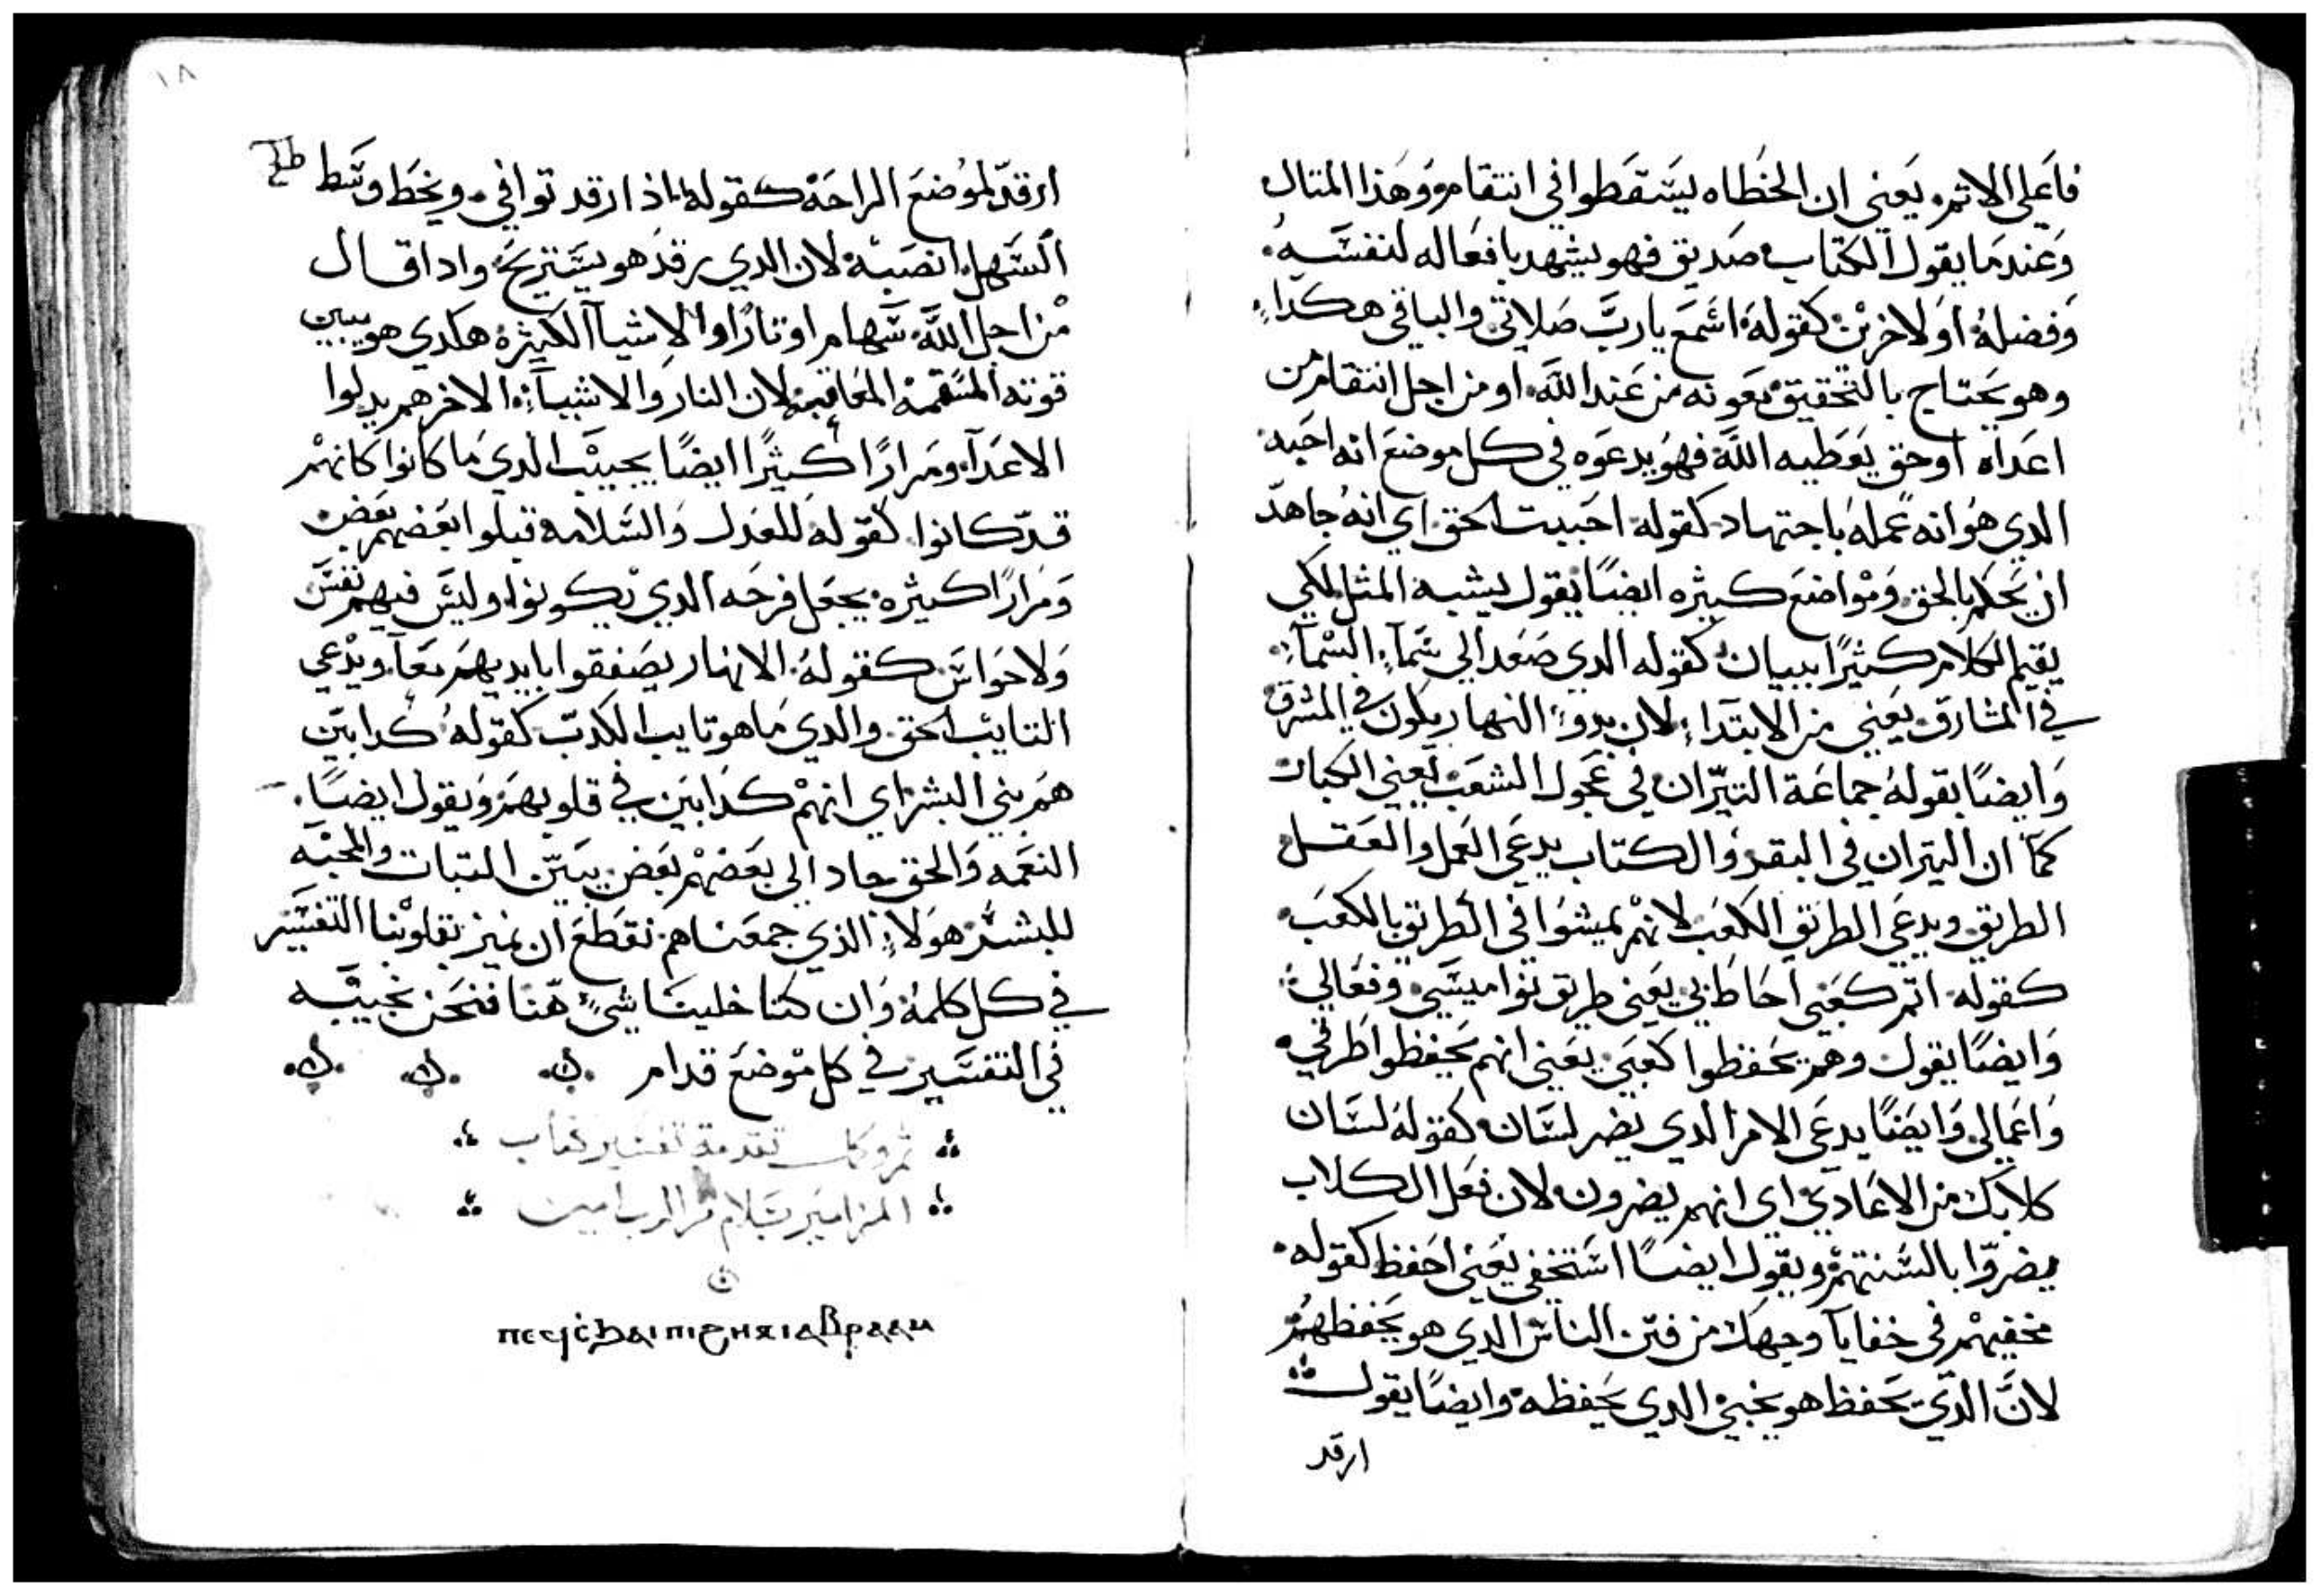 فاعلي الاتم. يعني ان الخطاه يسقطوا في انتقام. وهذا المتال
وعندما يقول الكتاب صديق فهو يشهد بافعاله لنفسه.
وفضله او لاخرين كقوله اسمع يارب صلاتي والباقي هكدا
وهو يحتاج بالتحقيق معونه من عند الله. او من اجل انتقام من
اعداه او حق يعطيه الله فهو يدعوه في كل موضع انه احبه
الدي هو انه عمله باجتهاد كقوله احببت الحق اي انه جاهد
ان يحكم بالحق. ومواضع كثيره ايضًا يقول يشبه المثل لكي
يقيم الكلام كثيرًا ببيان كقوله الدي صعد الي سماء السماء
في المشارق يعني من الابتداء لان بدوء النهار يكون في المشرق
وايضًا بقوله جماعة التيران في عجول الشعب يعني الكبار
كما ان التيران في البقر والكتاب يدعي العمل والعقل
الطريق ويدعي الطريق الكعب لانهم يمشوا في الطريق بالكعب
كقوله اتم كعبي احاط بي يعني طريق نواميسي وفعالي
وايضًا يقول وهم يحفظوا كعبي يعني انهم يحفظوا طرقي
واعمالي وايضًا يدعي الامر الدي يضر لسان كقوله لسان
كلابك من الاعادي اي انهم يضرون لان فعل الكلاب
يضروا بالسنتهم ويقول ايضًا استخفي يعني احفظ كقوله
مخفيهم في خفايا وجهك من فتن الناس الدي هو يحفظهم
لان الدي يحفظ هو يخبي الدي يحفظه وايضًا يقول
ارقد
١٨
ارقد لموضع الراحه كقوله اذا ارقد توافي. ويحط وسط
السهل انصبه لان الدي يرقد هو يستريح وادا قال
من اجل الله سهام او نارًا والاشيا الكثيره هكدي هو يبين
قوته المنتقمه المعاقبه لان النار والاشياء الاخر هم يدلوا
الاعدا ومرارًا كثيرًا ايضًا يجيب الدي ما كانوا كانهم
قد كانوا كقوله للعدل والسلامه قبلوا بعضهم بعض
ومرارًا كثيره يجعل فرحه الدي يكونوا وليس فيهم نفس
ولا حواس كقوله الانهار يصفقوا بايديهم معا ويدعي
التايب الحق والدي ما هو تايب الكدب كقوله كدابين
هم بني البشر اي انهم كدابين في قلوبهم ويقول ايضًا.
النعمه والحق جاد الي بعضهم بعض يبين التبات والمحبه
للبشر هولاء الذي جمعناهم نقطع ان نميز بقلوبنا التفسير
في كل كلمه وان كنا خلينا شيء هنا فنحن نجيبه
في التفسير في كل موضع قدام
تم وكمل تقدمة تفسير كتاب
المزامير بسلام من الرب امين
ⲡⲉϥⲥϧⲁⲓ ⲡⲓϩⲏⲕⲓ ⲁⲃⲣⲁⲁⲙ